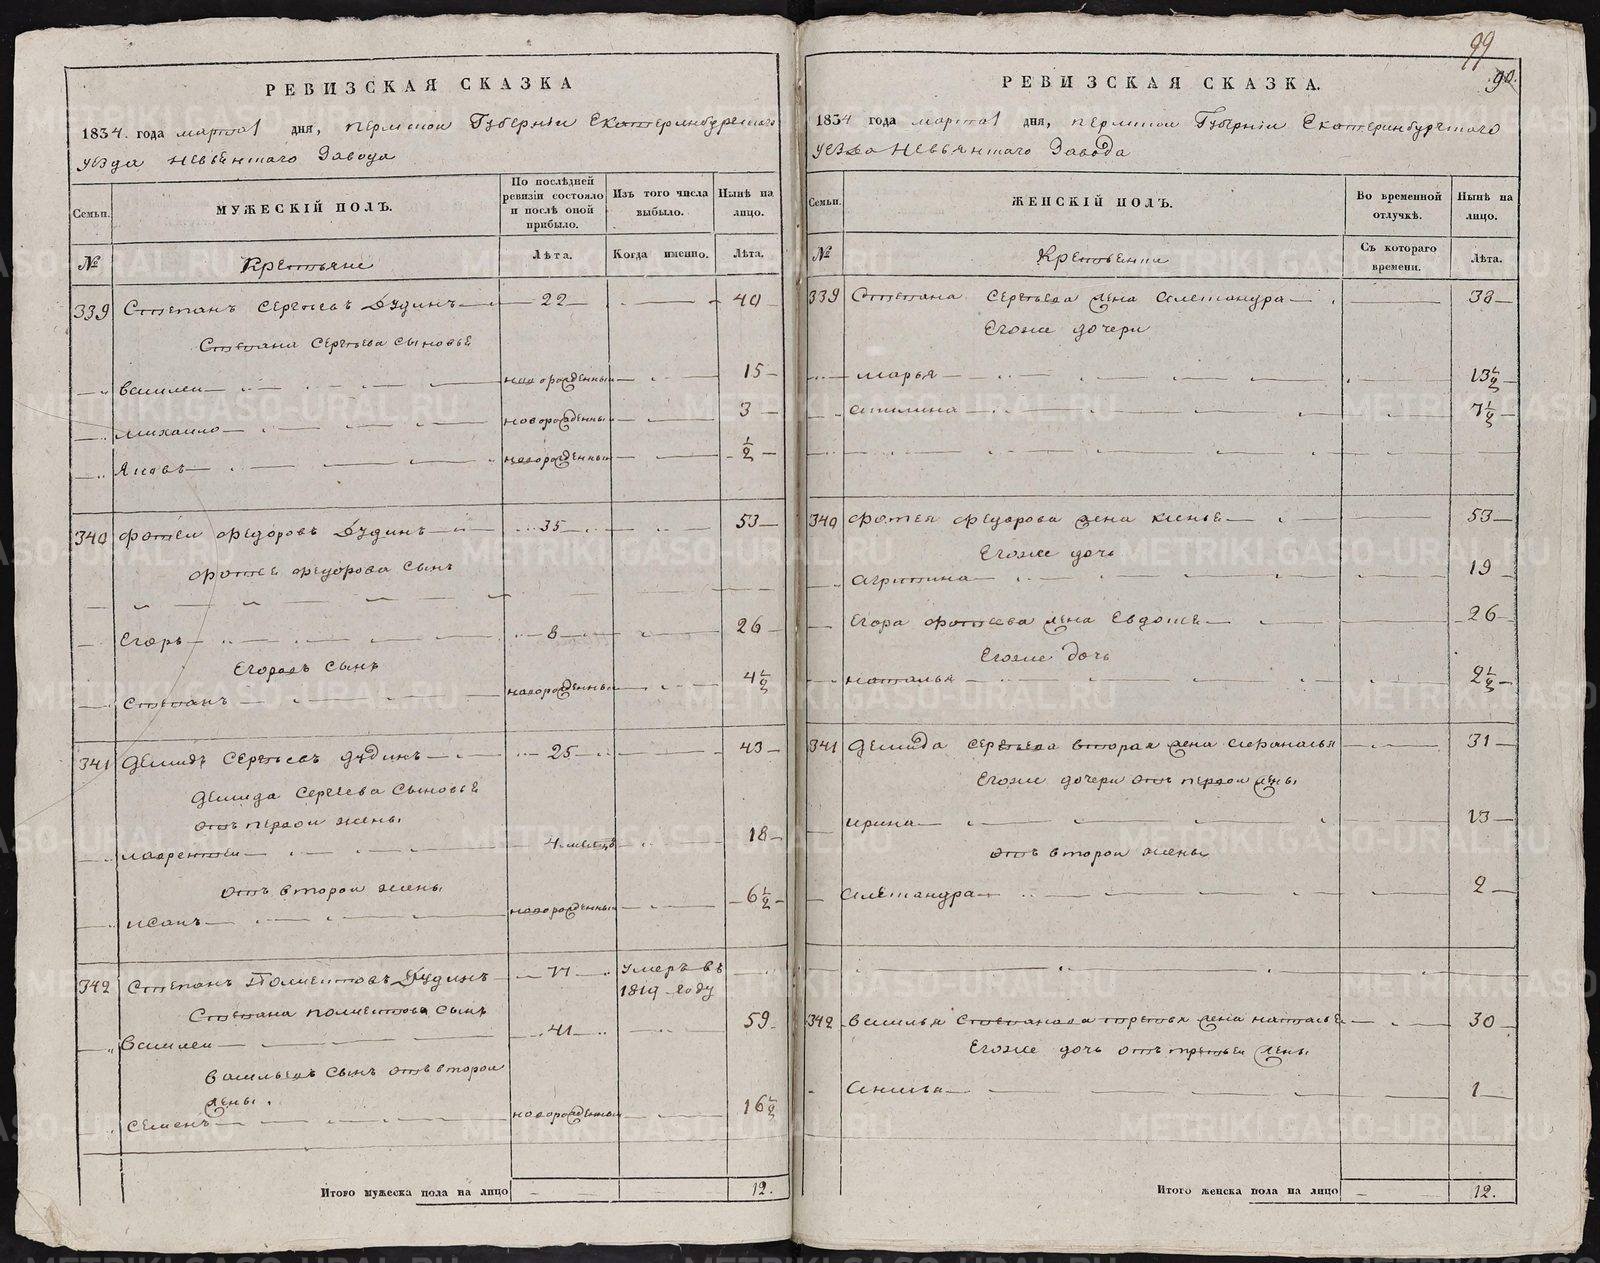 99
90.
РЕВИЗСКАЯ СКАЗКА
1834. года марта 1 дня, Пермской Губернии Екатеринбургского
уезда Невьянского Завода
Семьи.
МУЖЕСКІЙ ПОЛЪ.
По послѣдней ревизіи состояло и послѣ оной прибыло.
Изъ того числа выбыло.
Нынѣ на лицо.
№
Крестьяне
Лѣта.
Когда именно.
Лѣта.
339 Степанъ Сергеевъ Дудинъ 22 40
Степана Сергеева сыновье
Василеи новорожденныи 15
Михаило новорожденныи 3
Яковъ новорожденныи ½
340 Фотеи Федоровъ Дудинъ 35 53
Фотее Федорова сынъ
Егоръ 8 26
Егоровъ сынъ
Степанъ новорожденныи 4½
341 Демидъ Сергеевъ Дудинъ 25 43
Демида Сергеева сыновье
отъ первои жены
Лаврентеи 4 месецовъ 18
отъ второи жены
Исакъ новорожденныи 6½
342 Степанъ Полиектовъ Дудинъ 77 умеръ въ
1819 году
Степана Полиектова сынъ
Василеи 41 59
Васильевъ сынъ отъ второи
жены.
Семенъ новорожденныи 16½
Итого мужеска пола на лицо 12.
РЕВИЗСКАЯ СКАЗКА.
1834 года марта 1 дня, Пермской Губернии Екатеринбургского
уезда Невьянского Завода
Семьи.
ЖЕНСКІЙ ПОЛЪ.
Во временной отлучкѣ.
Нынѣ на лицо.
№
Съ котораго времени.
Лѣта.
339 Степана Сергеева жена Александра 38
Егоже дочери
Марья 13½
Акилина 7½
340 Фотея Федорова жена Ксенье 53
Егоже дочь
Агрипина 19
Егора Фотеева жена Евдокее 26
Егоже дочь
Наталья 2½
341 Демида Сергеева вторая жена 31
Егоже дочери отъ первои жены
Ирина 13
отъ второи жены
Александра 2
342 Василья Степанова третья жена Наталье 30
Егоже дочь отъ третьеи жены
1
Итого женска пола на лицо 12.
METRIKI.GASO-URAL.RU